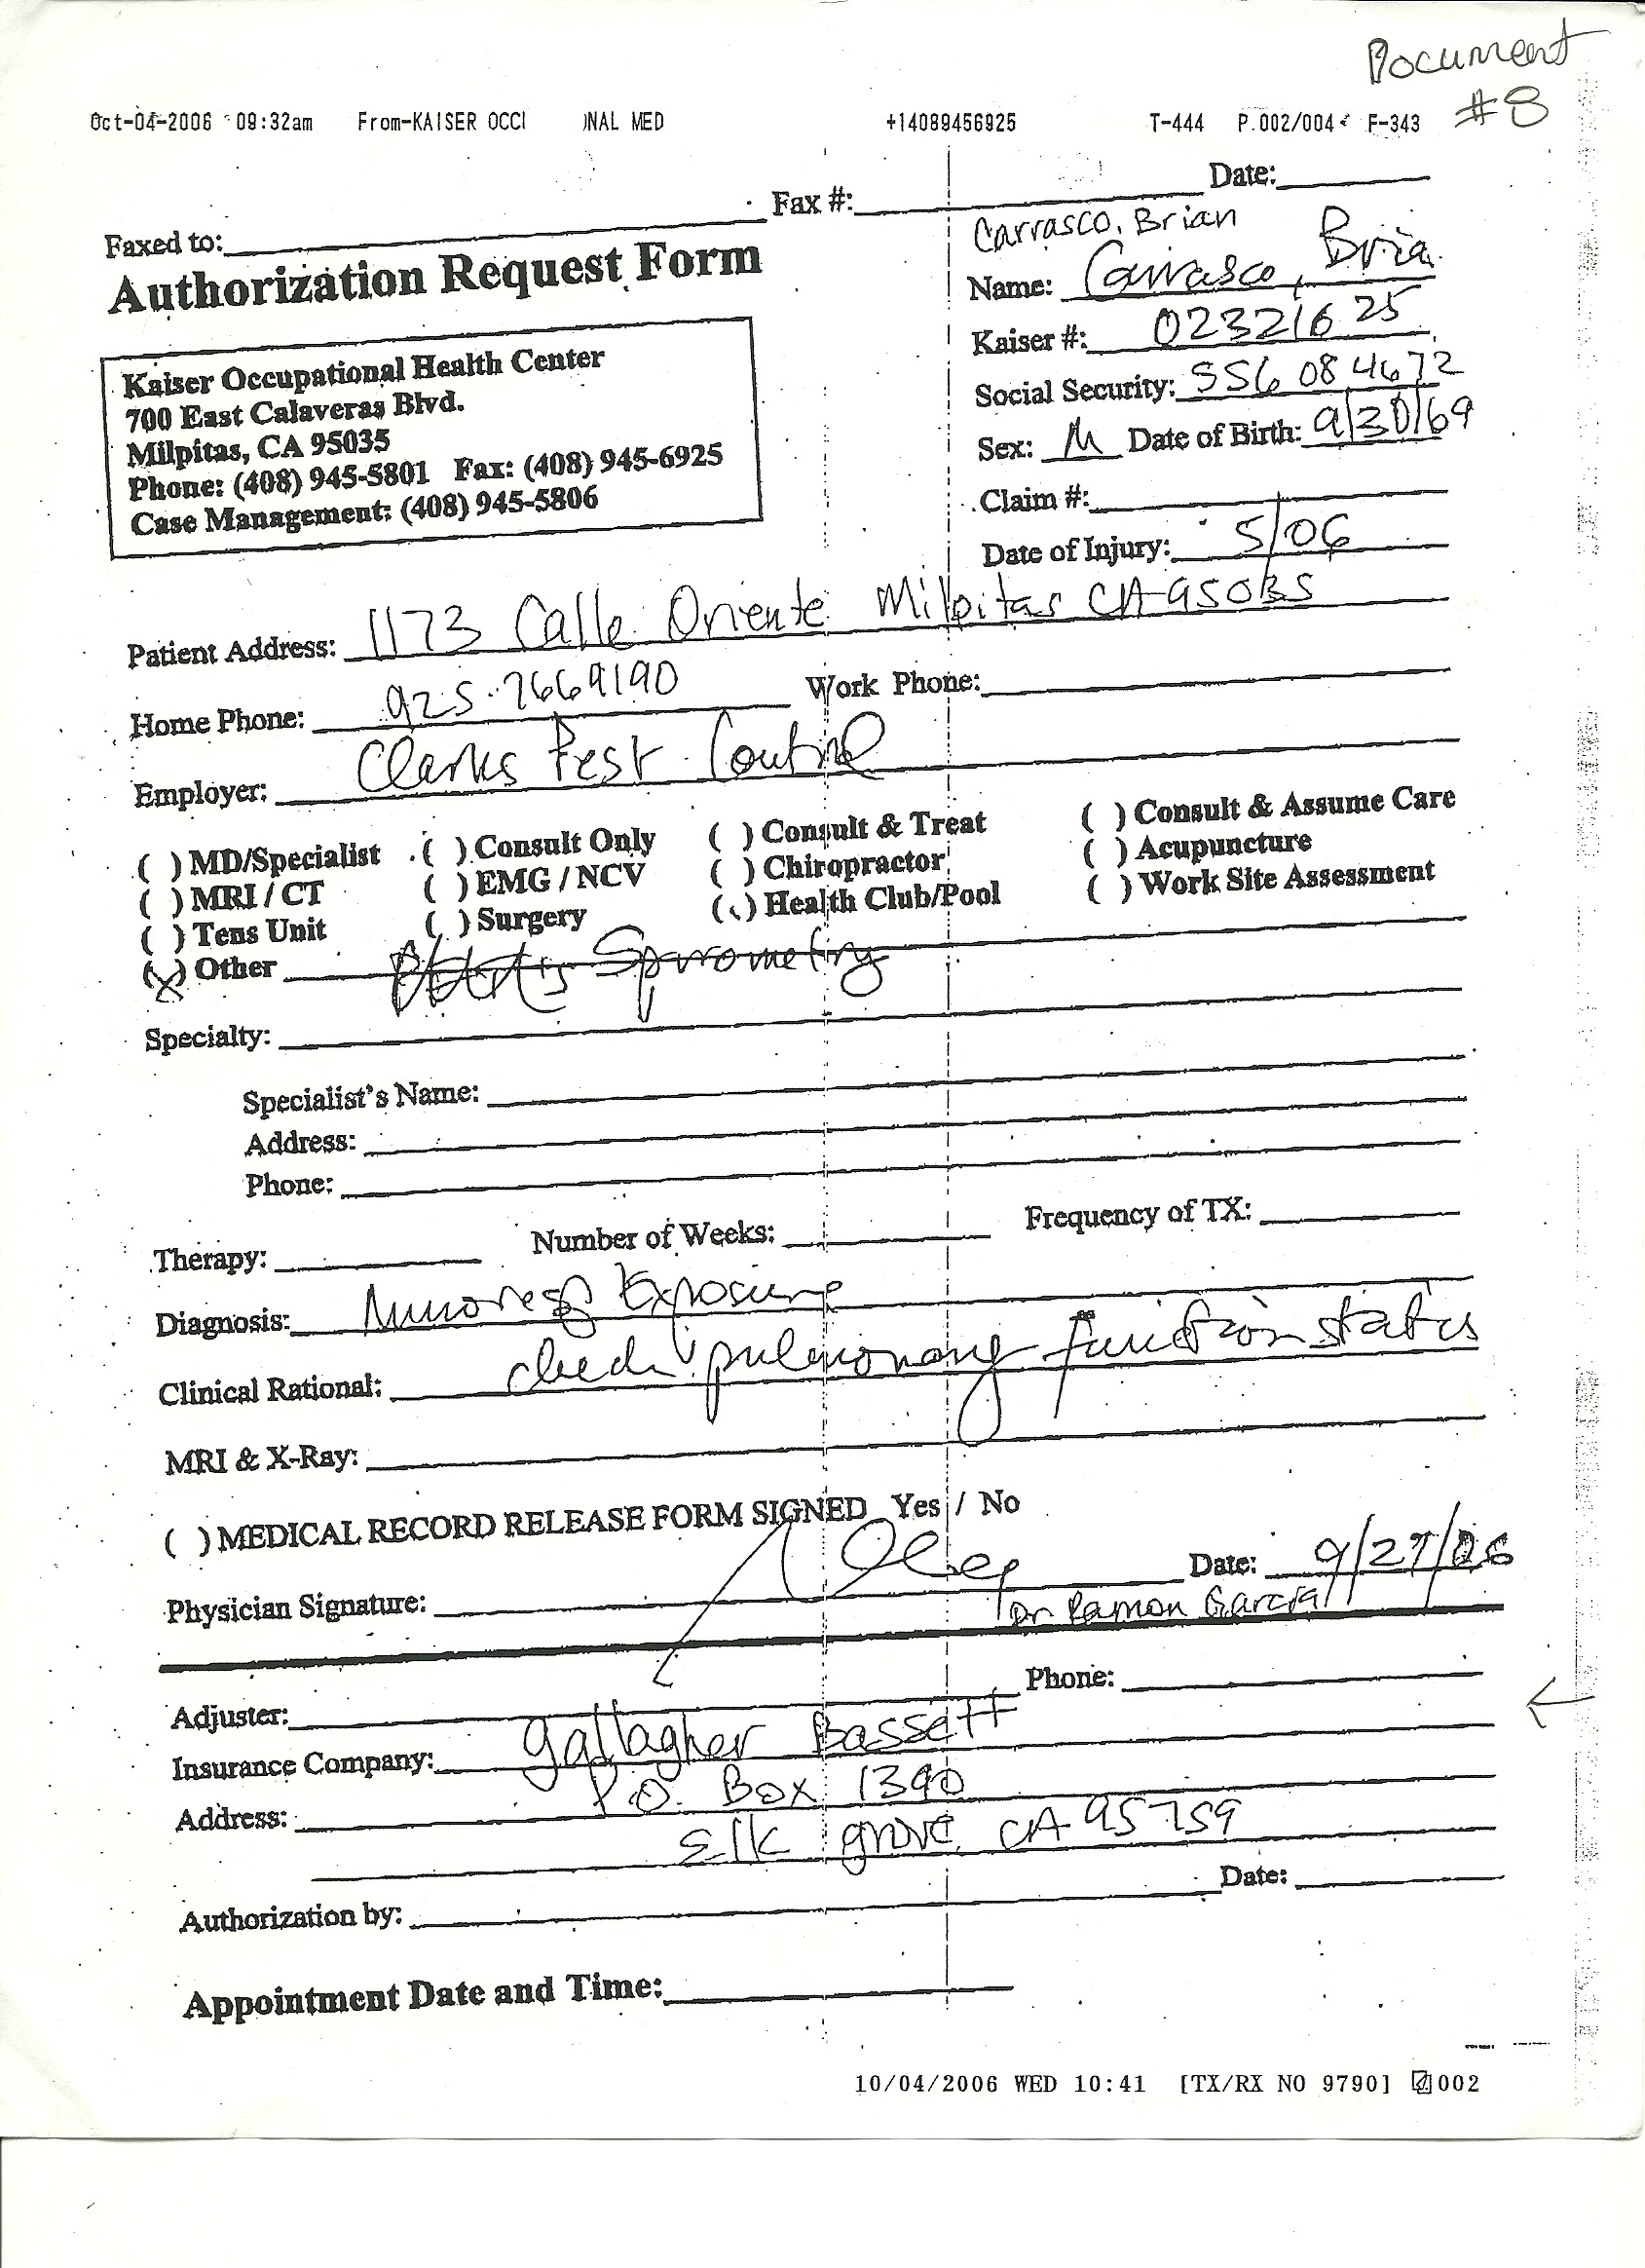 Document
#8
Oct-04-2006 09:32am From-KAISER OCCI )NAL MED +14089456925 T-444 P.002/004 F-343
Faxed to: Fax #: Date:
Authorization Request Form
Carrasco, Brian
Name: Carrasco, Bria
Kaiser #: 02321625
Kaiser Occupational Health Center
700 East Calaveras Blvd.
Milpitas, CA 95035
Phone: (408) 945-5801 Fax: (408) 945-6925
Case Management: (408) 945-5806
Social Security: 556 08 4672
Sex: M Date of Birth: 9/30/69
Claim #:
Date of Injury: 5/06
Patient Address: 1173 Calle Oriente Milpitas CA 95035
Home Phone: 925-7669190 Work Phone:
Employer: Clarks Pest Control
( ) MD/Specialist ( ) Consult Only ( ) Consult & Treat ( ) Consult & Assume Care
( ) MRI / CT ( ) EMG / NCV ( ) Chiropractor ( ) Acupuncture
( ) Tens Unit ( ) Surgery ( ) Health Club/Pool ( ) Work Site Assessment
(X) Other Spirometry
Specialty:
Specialist's Name:
Address:
Phone:
Therapy: Number of Weeks: Frequency of TX:
Diagnosis: Exposure
Clinical Rational: check pulmonary function status
MRI & X-Ray:
( ) MEDICAL RECORD RELEASE FORM SIGNED Yes / No
Physician Signature: Date: 9/27/06
Dr Ramon Garcia
Adjuster: Phone:
Insurance Company: Gallagher Bassett
Address: P.O. Box 1390
Elk grove, CA 95759
Authorization by: Date:
Appointment Date and Time:
10/04/2006 WED 10:41 [TX/RX NO 9790] 002